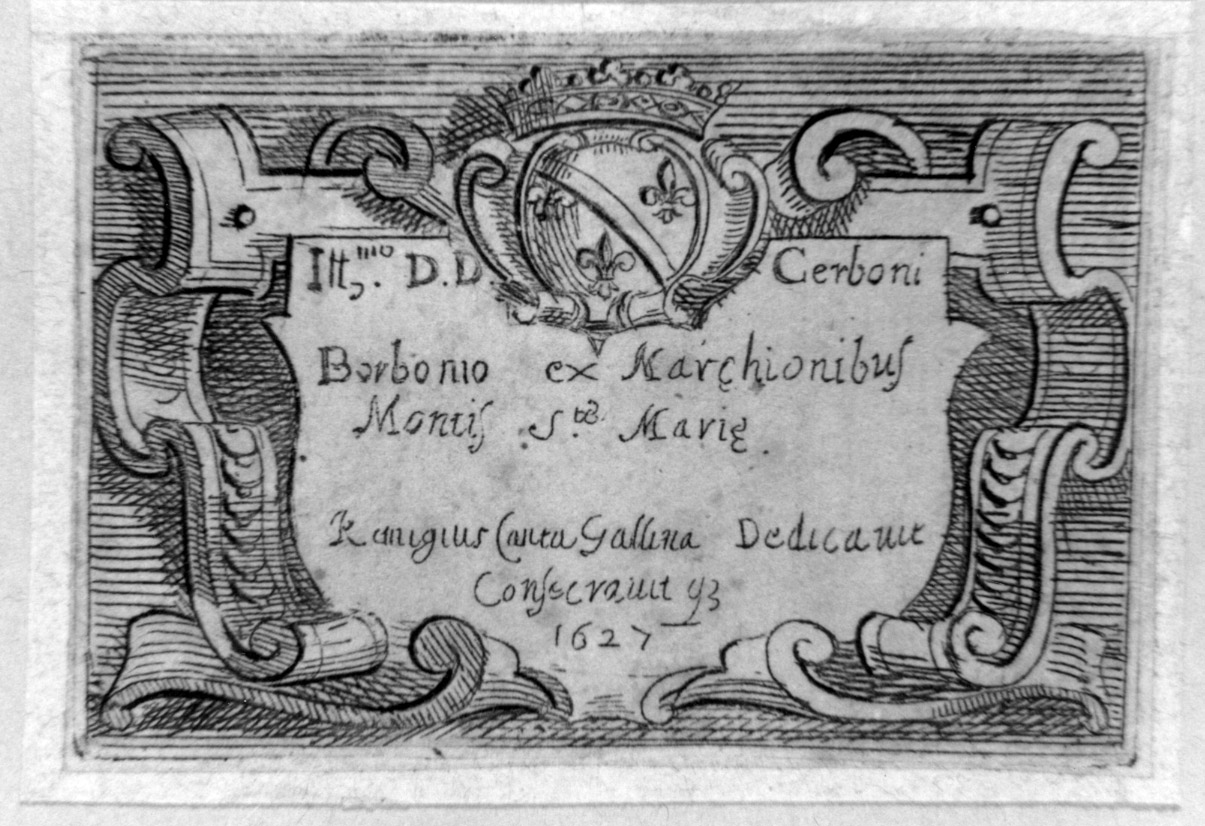 Ill.mo D.D. Cerboni
Borbonio ex Marchionibus
Montis S.tę Marię
Remigius Canta Gallina Dedicauit
Consecrauit qȝ
1627